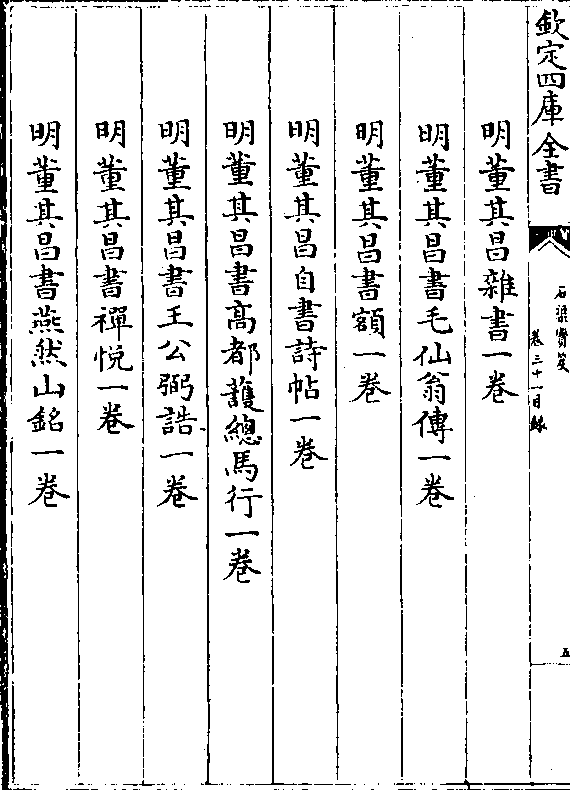 欽定四庫全書
石渠寶笈
卷三十一目錄
五
明董其昌雜書一卷
明董其昌書毛仙翁傳一卷
明董其昌書額一卷
明董其昌自書詩帖一卷
明董其昌書高都護驄馬行一卷
明董其昌書王公弼誥一卷
明董其昌書禪悅一卷
明董其昌書燕然山銘一卷